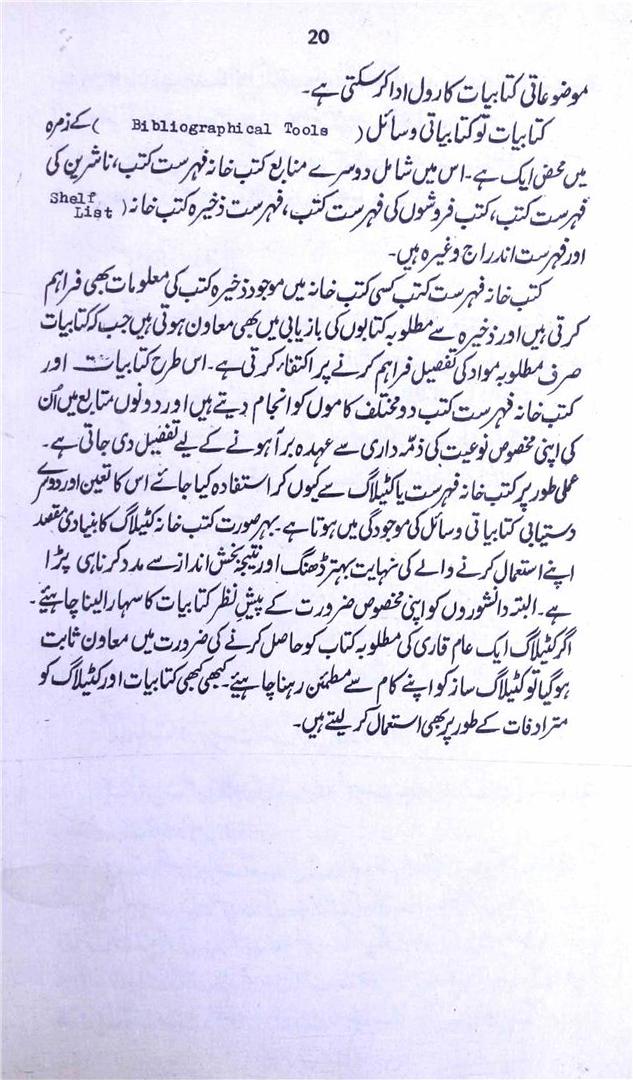 20
موضوعاتی کتابیات کا رول ادا کرسکتی ہے۔
کتابیات تو کتابیاتی وسائل ( Bibliographical Tools ) کے زمرہ
میں محض ایک ہے۔ اس میں شامل دوسرے منابع کتب خانہ فہرست کتب، ناشرین کی
فہرست کتب، کتب فروشوں کی فہرست کتب، فہرست ذخیرہ کتب خانہ ( Shelf List
اور فہرست اندراج وغیرہ ہیں۔
کتب خانہ فہرست کتب کسی کتب خانہ میں موجود ذخیرہ کتب کی معلومات بھی فراہم
کرتی ہیں اور ذخیرہ سے مطلوبہ کتابوں کی بازیابی میں بھی معاون ہوتی ہیں جب کہ کتابیات
صرف مطلوبہ مواد کی تفصیل فراہم کرنے پر اکتفاء کرتی ہے۔ اس طرح کتابیات اور
کتب خانہ فہرست کتب دو مختلف کاموں کو انجام دیتے ہیں اور دونوں منابع میں اُن
کی اپنی مخصوص نوعیت کی ذمّہ داری سے عہدہ برآ ہونے کے لیے تفضیل دی جاتی ہے۔
عملی طور پر کتب خانہ فہرست یا کٹیلاگ سے کیوں کر استفادہ کیا جائے اس کا تعین اور دوسرے
دستیابی کتابیاتی وسائل کی موجودگی میں ہوتا ہے۔ بہرصورت کتب خانہ کٹیلاگ کا بنیادی مقصد
اپنے استعمال کرنے والے کی نہایت بہتر ڈھنگ اور نتیجہ بخش انداز سے مدد کرنا ہی پڑا
ہے۔ البتہ دانشوروں کو اپنی مخصوص ضرورت کے پیش نظر کتابیات کا سہارا لینا چاہیئے۔
اگر کٹیلاگ ایک عام قاری کی مطلوبہ کتاب کو حاصل کرنے کی ضرورت میں معاون ثابت
ہوگیا تو کٹیلاگ ساز کو اپنے کام سے مطمئن رہنا چاہیئے۔ کبھی کبھی کتابیات اور کٹیلاگ کو
مترادفات کے طور پر بھی استعمال کرلیتے ہیں۔